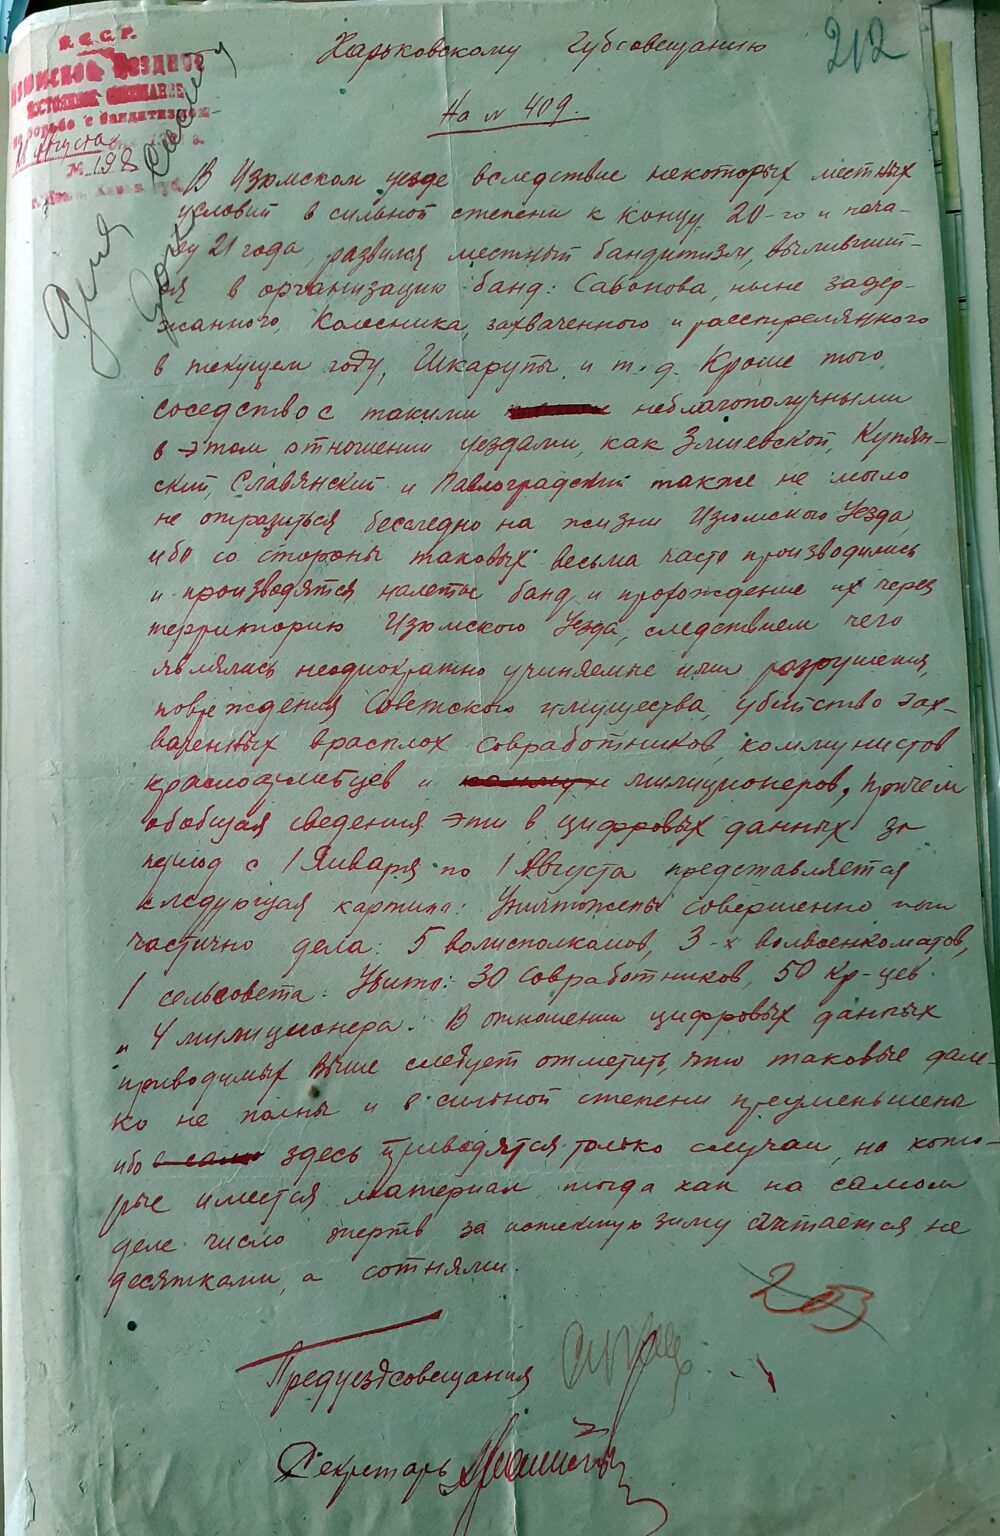 У.С.С.Р.
Изюмское Уездное
Постоянное Совещание
по борьбе с бандитизмом
Августа
№ 198
212
Харьковскому Губсовещанию
На № 409.
В Изюмском уезде вследствие некоторых местных
условий в сильной степени к концу 20-го и нача-
лу 21 года, развился местный бандитизм, выливший-
ся в организацию банд: Савонова, ныне задер-
жанного, Колесника, захваченного и расстрелянного
в текущем году, Шкарупы и т. д. Кроме того
соседство с такими неблагополучными
в этом отношении уездами, как Змиевской, Купян-
ский, Славянский и Павлоградский также не могло
не отразиться бесследно на жизни Изюмского Уезда,
ибо со стороны таковых весьма часто производились
и производятся налеты банд и прохождение их через
территорию Изюмского Уезда, следствием чего
являлись неоднократно учиняемые ими разрушения,
повреждения Советского имущества, убийство зах-
ваченных врасплох совработников, коммунистов
красноармейцев и милиционеров, причем
обобщая сведения эти в цифровых данных за
период с 1 Января по 1 Августа представляется
следующая картина: Уничтожены совершенно или
частично дела: 5 волисполкомов, 3-х волвоенкоматов,
1 сельсовета. Убито: 30 совработников, 50 кр-цев
и 4 милиционера. В отношении цифровых данных
приводимых выше следует отметить, что таковые дале-
ко не полны и в сильной степени преуменьшены
ибо здесь приводятся только случаи, на кото-
рые имеется материал, тогда как на самом
деле число жертв за истекшую зиму считается не
десятками, а сотнями.
203
Предуездсовещания
Секретарь